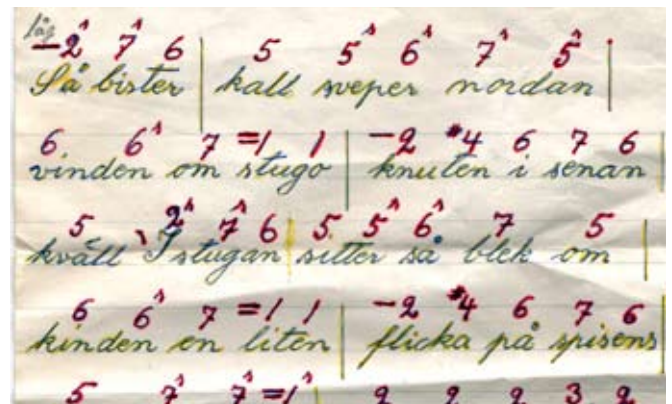 låg
-2^ 7^ 6 | 5 5^ 6^ 7^ 5^ |
Så bister | kall sveper nordan |
6 6^ 7 =1 1 | -2 #4 6 7 6
vinden om stugo | knuten i senan
5 2^ 7^ 6 | 5 5^ 6^ 7 5 |
kväll I stugan sitter så blek om |
6 6^ 7 =1 1 | -2 #4 6 7 6
kinden en liten | flicka på spisens
5 7^ 7^ =1^ | 2 2 2 3 2